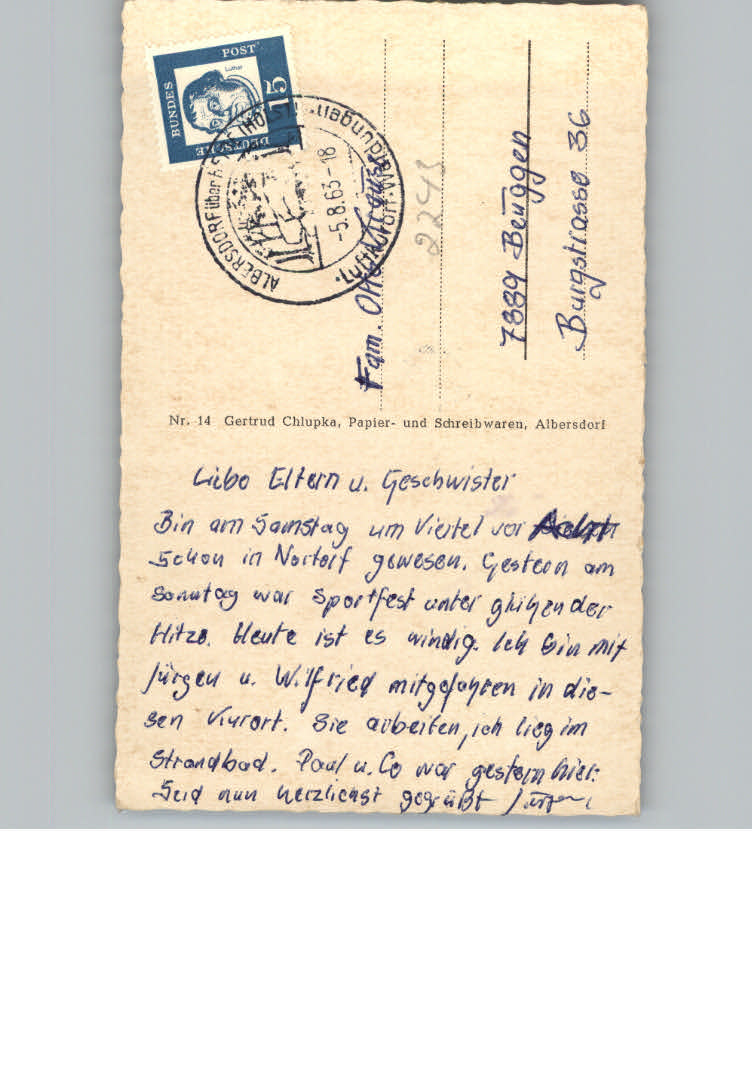 DEUTSCHE
BUNDES
POST
15
Luther
ALBERSDORF über
Luftkurort Waldungen
-5.8.63-18
Fam. Otto
2243
7889 Beuggen
Burgstrasse 36
Nr. 14 Gertrud Chlupka, Papier- und Schreibwaren, Albersdorf
Liebe Eltern u. Geschwister
Bin am Samstag um Viertel vor Acht
schon in Nortorf gewesen. Gestern am
Sonntag war Sportfest unter glühender
Hitze. Heute ist es windig. Ich bin mit
Jürgen u. Wilfried mitgefahren in die-
sen Kurort. Sie arbeiten, ich lieg im
Strandbad. Paul u. Co war gestern hier.
Seid nun herzlichst gegrüßt